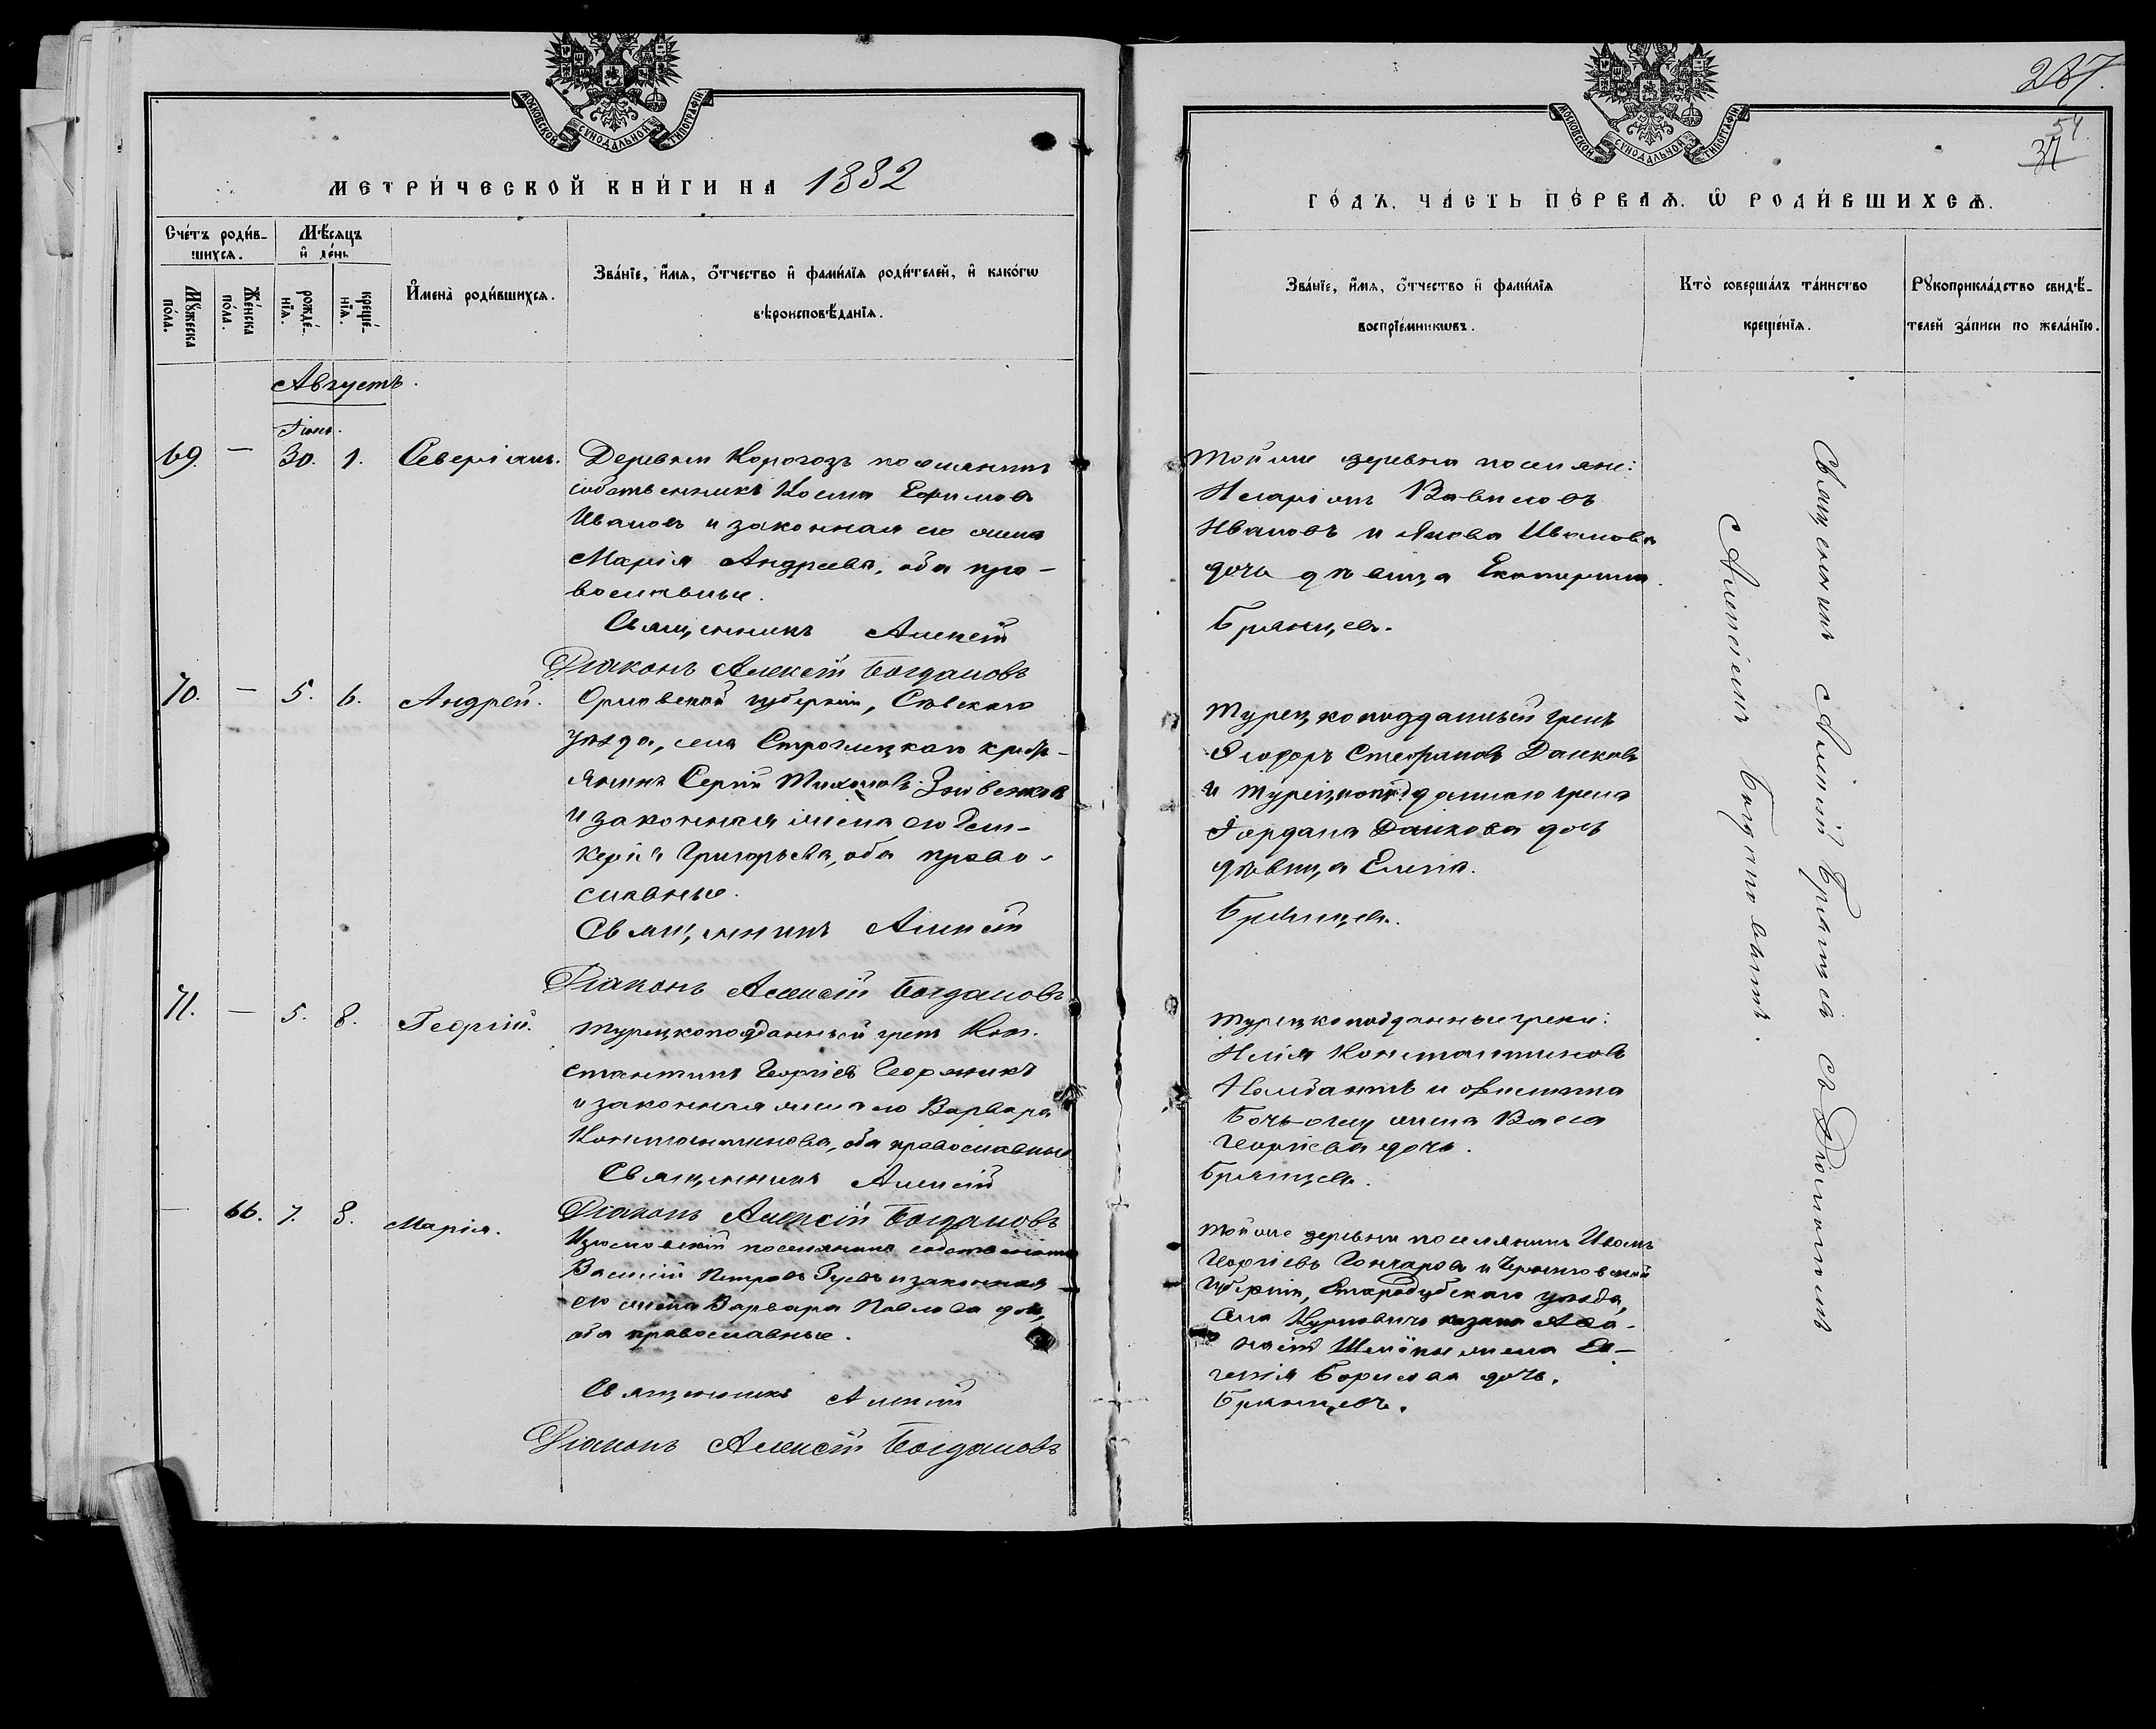 МОСКОВСКОЙ СѴНОДАЛЬНОЙ ТИПОГРАФІИ
МЕТРИ́ЧЕСКОЙ КНИ́ГИ НА 1882
Сче́тъ роди́в-
шихся.
Мѣ́сяцъ
и҆ де́нь
Мꙋ́жеска
по́ла.
Же́нска
по́ла.
рожде́-
нїѧ.
креще́-
нїѧ.
И҆мена̀ роди́вшихсѧ.
Зва́нїе, и҆́мѧ, ѻ҆́тчество и҆ фами́лїѧ роди́телей, и҆ како́гѡ
вѣроисповѣ́данїѧ.
Августъ.
Іюнь.
69. — 30. 1. Северіанъ.
Деревни Корогозъ поселянинъ
собственникъ Косма Ефимовъ
Ивановъ и законная его жена
Марія Андреева, оба пра-
вославные.
Священникъ Алексій
Діаконъ Алексій Богдановъ
70. — 5. 6. Андрей.
Орловской губерніи, Севскаго
уезда, села Строчицкаго крест-
янинъ Сергій Тихоновъ
и законная жена его Гли-
керія Григорьева, оба право-
славные.
Священникъ Алексій
Діаконъ Алексій Богдановъ
71. — 5. 8. Георгій.
Турецкоподданный грекъ Кон-
стантинъ Георгіевъ
и законная жена его Варвара
Константинова, оба православные
Священникъ Алексій
Діаконъ Алексій Богдановъ
— 66. 7. 8. Марія.
Изюмовскій поселянинъ собственникъ
Василій Петровъ Гуевъ и законная
его жена Варвара Павлова дочь,
оба православные.
Священникъ Алексій
Діаконъ Алексій Богдановъ
МОСКОВСКОЙ СѴНОДАЛЬНОЙ ТИПОГРАФІИ
267.
54.
37
ГО́ДЪ. ЧА́СТЬ ПЕ́РВАѦ. Ѽ РОДИ́ВШИХСѦ.
Зва́нїе, и҆́мѧ, ѻ҆́тчество и҆ фами́лїѧ
воспрїе́мникѡвъ.
Кто̀ соверша́лъ та́инство
креще́нїѧ.
Рꙋкоприкла́дство свидѣ́-
телей за́писи по жела́нїю.
Той же деревни поселяне:
Иларіонъ Вавиловъ
Ивановъ и Якова Иванова
дочь девица Екатерина.
Брянцевъ.
Турецкоподданный грекъ
Ѳеодоръ Стефановъ Данковъ
и турецкоподданнаго грека
Іордана Данкова дочь
девица Елена.
Брянцевъ.
Турецкоподданные греки:
Илія Константиновъ
и
жена Васса
Георгіева дочь.
Брянцевъ.
Той же деревни поселянинъ
Георгіевъ Гончаровъ и Черниговской
губерніи, Стародубскаго уезда,
села Курковичъ казака Аѳа-
насія жена Ев-
генія Борисова дочь.
Брянцевъ.
Священникъ Алексій Брянцевъ съ Діакономъ
Алексіемъ Богдановымъ.